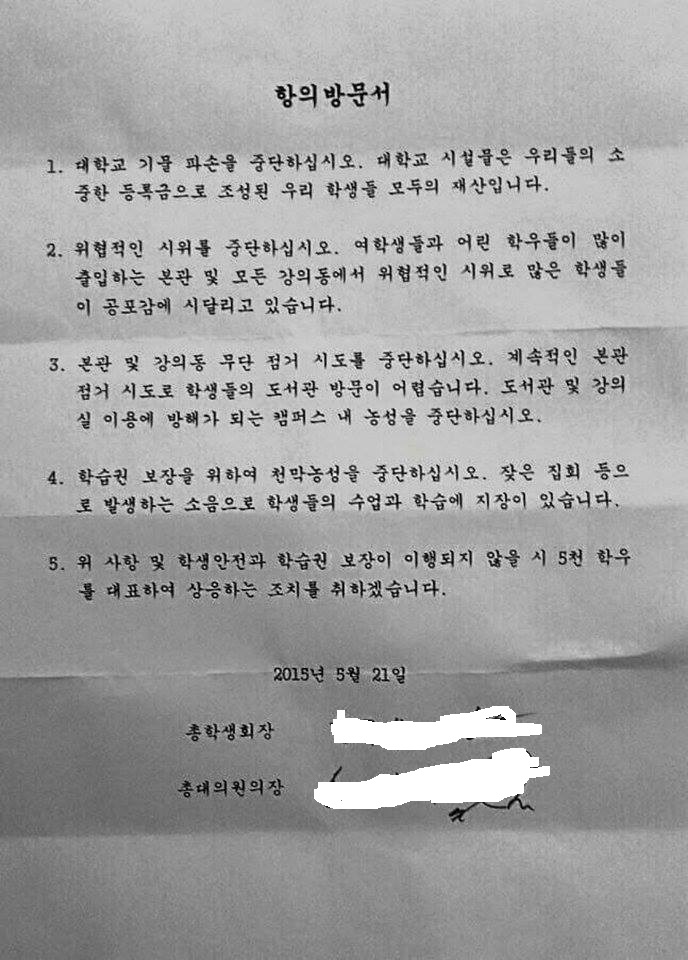 항의방문서
1. 대학교 기물 파손을 중단하십시오. 대학교 시설물은 우리들의 소
중한 등록금으로 조성된 우리 학생들 모두의 재산입니다.
2. 위협적인 시위를 중단하십시오. 여학생들과 어린 학우들이 많이
출입하는 본관 및 모든 강의동에서 위협적인 시위로 많은 학생들
이 공포감에 시달리고 있습니다.
3. 본관 및 강의동 무단 점거 시도를 중단하십시오. 계속적인 본관
점거 시도로 학생들의 도서관 방문이 어렵습니다. 도서관 및 강의
실 이용에 방해가 되는 캠퍼스 내 농성을 중단하십시오.
4. 학습권 보장을 위하여 천막농성을 중단하십시오. 잦은 집회 등으
로 발생하는 소음으로 학생들의 수업과 학습에 지장이 있습니다.
5. 위 사항 및 학생안전과 학습권 보장이 이행되지 않을 시 5천 학우
를 대표하여 상응하는 조치를 취하겠습니다.
2015년 5월 21일
총학생회장
총대의원의장